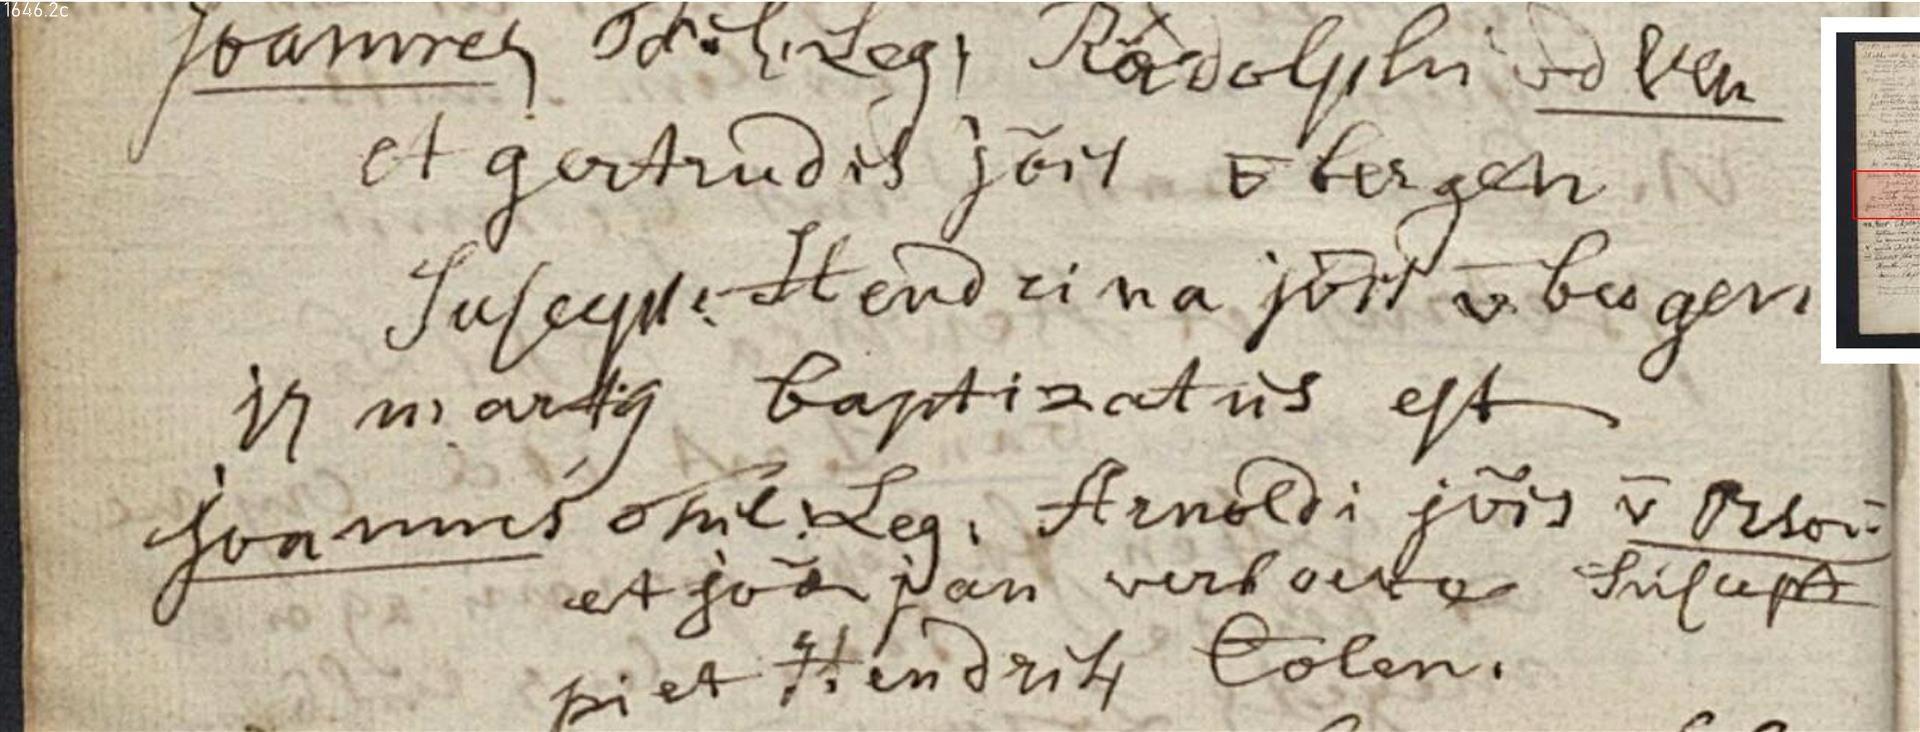 1646.2c
Joannes fil. Leg. Radolphi vd Ven
et gertrudis jõis v̄ bergen
Suscept: Hendrina jõis v̄ bergen
17 martij baptizatus est
Joannes fil: Leg. Arnoldi jõis v̄
et jõa jan Suscept
piet Hendrik Colen.